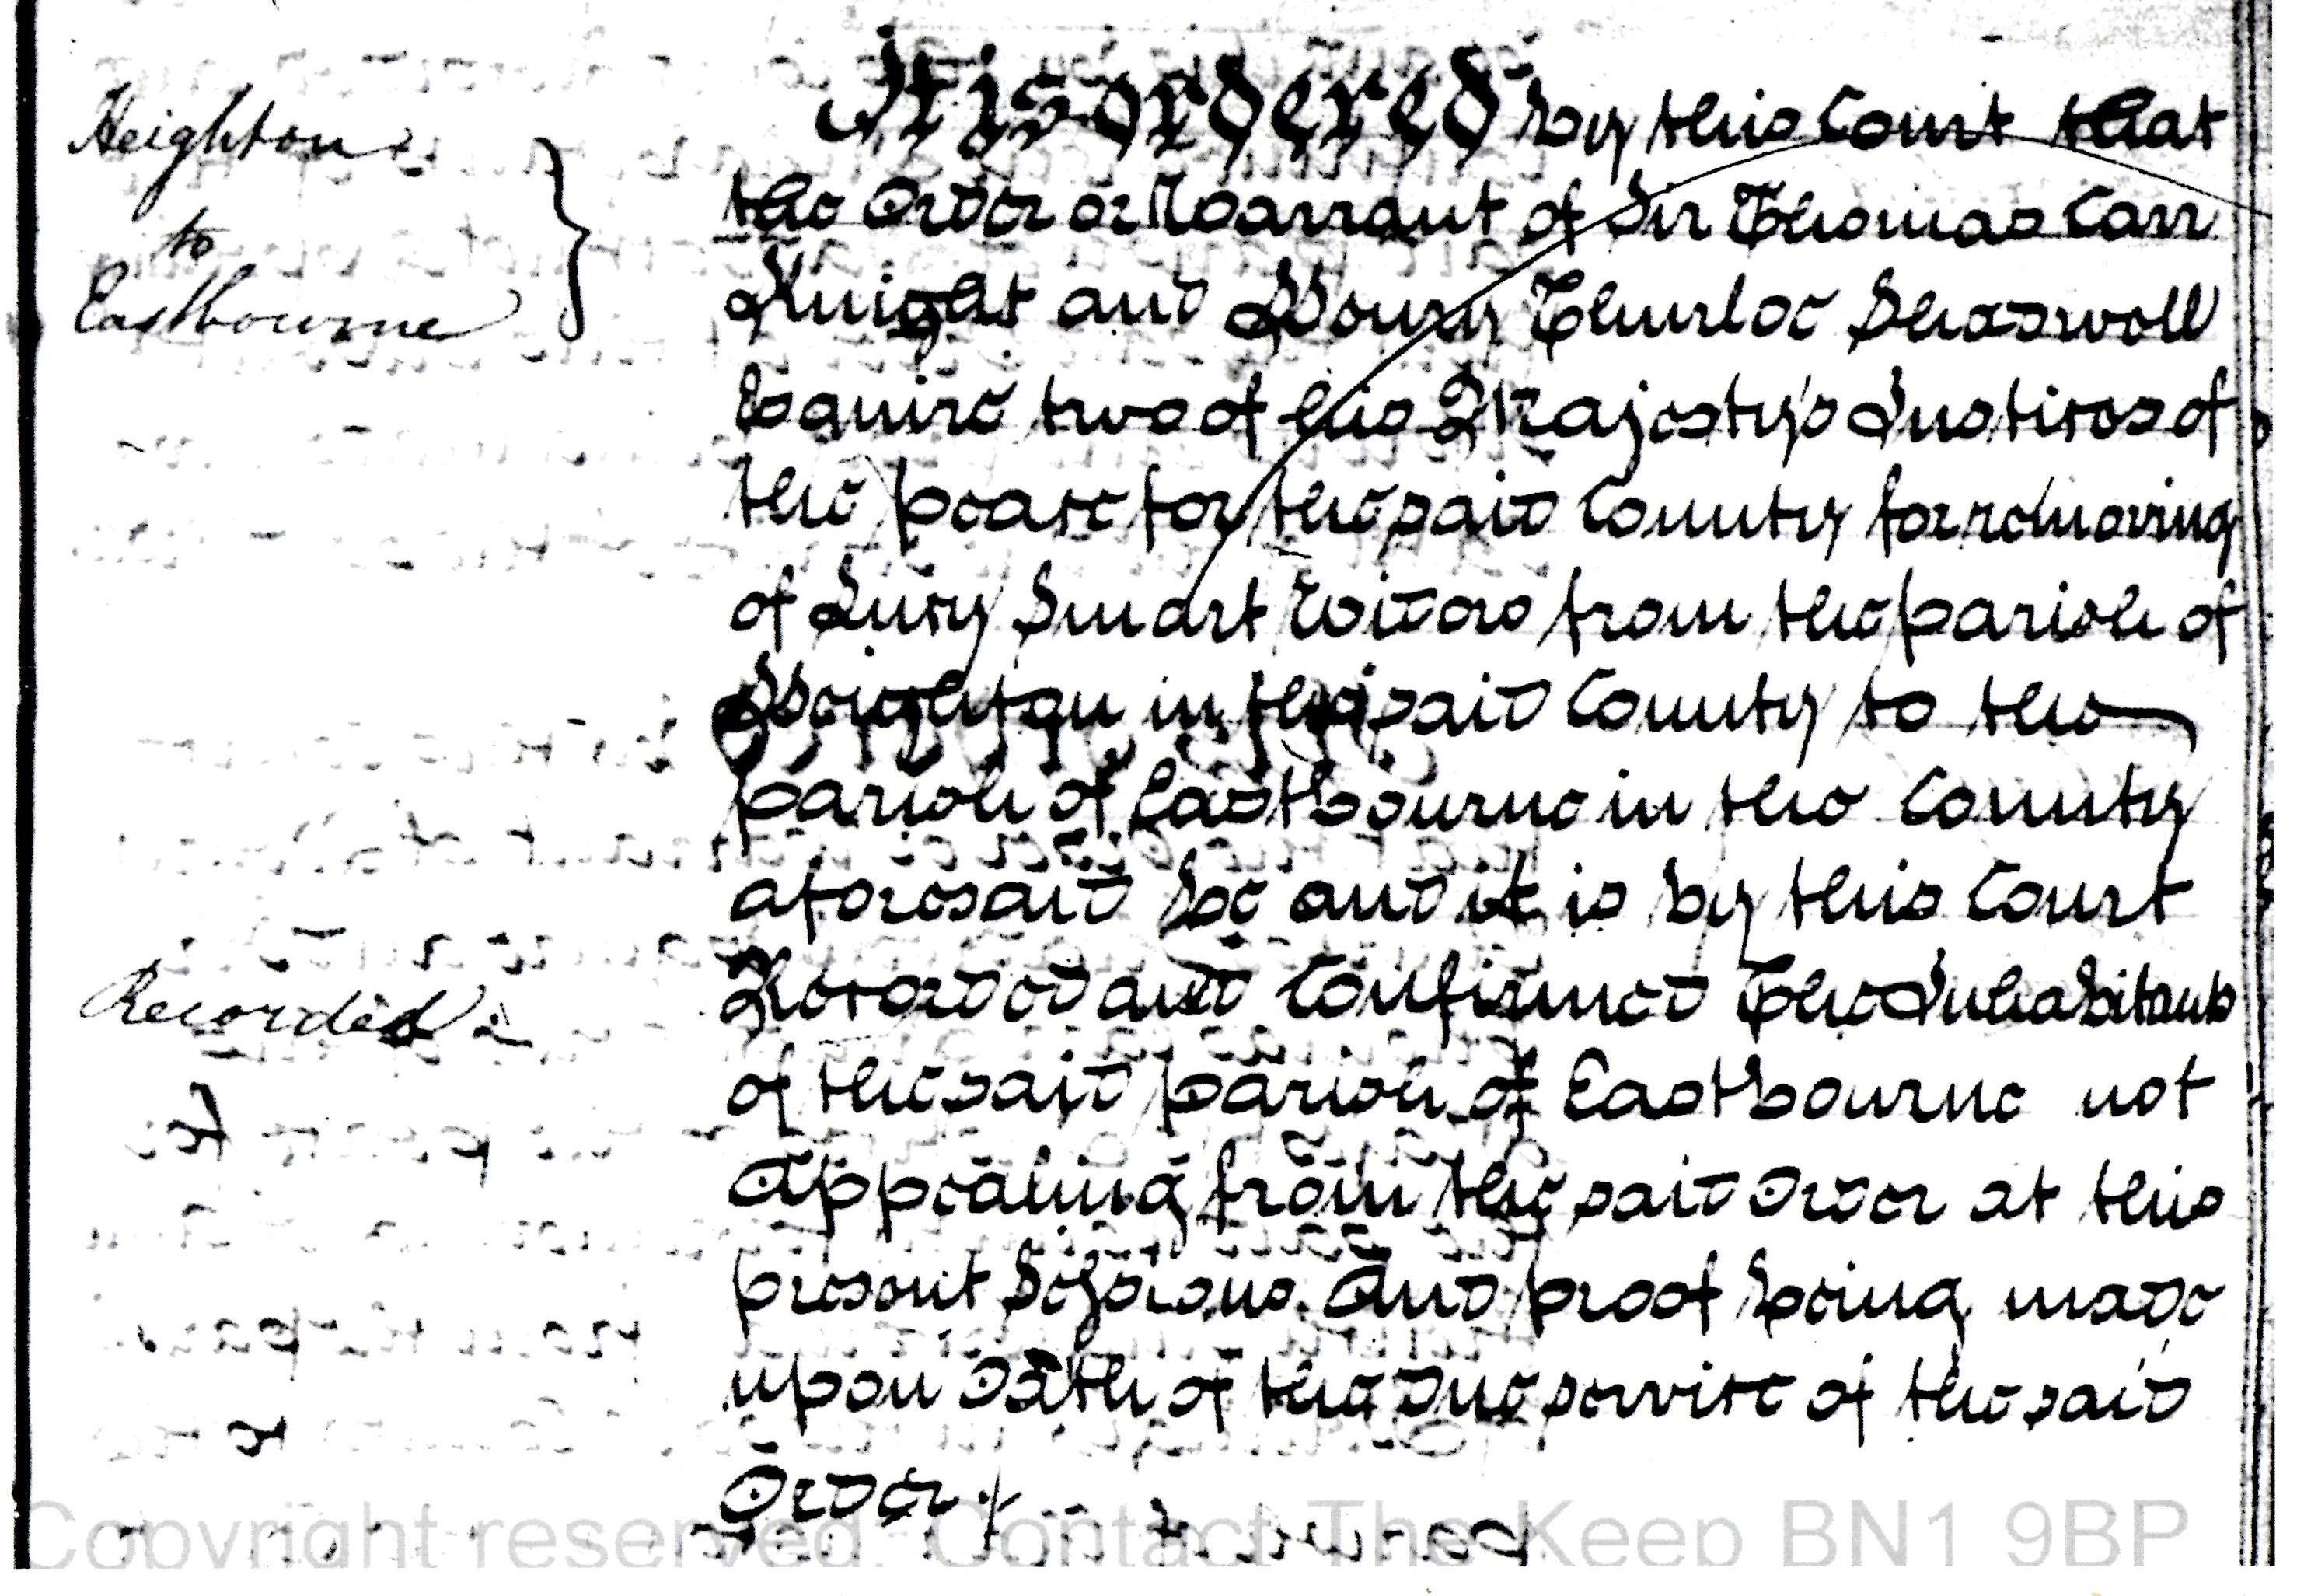 Heighton
to
Eastbourne
It is ordered by this Court that
the Order or Warrant of Sir Thomas Carr
Knight and Henry Thurloe Shadwell
Esquire two of his Majesty's Justices of
the peace for the said County for removing
of Lucy Smart Widow from the parish of
Heighton in the said County to the
parish of Eastbourne in the County
aforesaid be and it is by this Court
Recorded and Confirmed The Inhabitants
of the said parish of Eastbourne not
Appealing from the said Order at this
present Sessions And proof being made
upon Oath of the due service of the said
Order
Recorded
Copyright reserved. Contact The Keep BN1 9BP